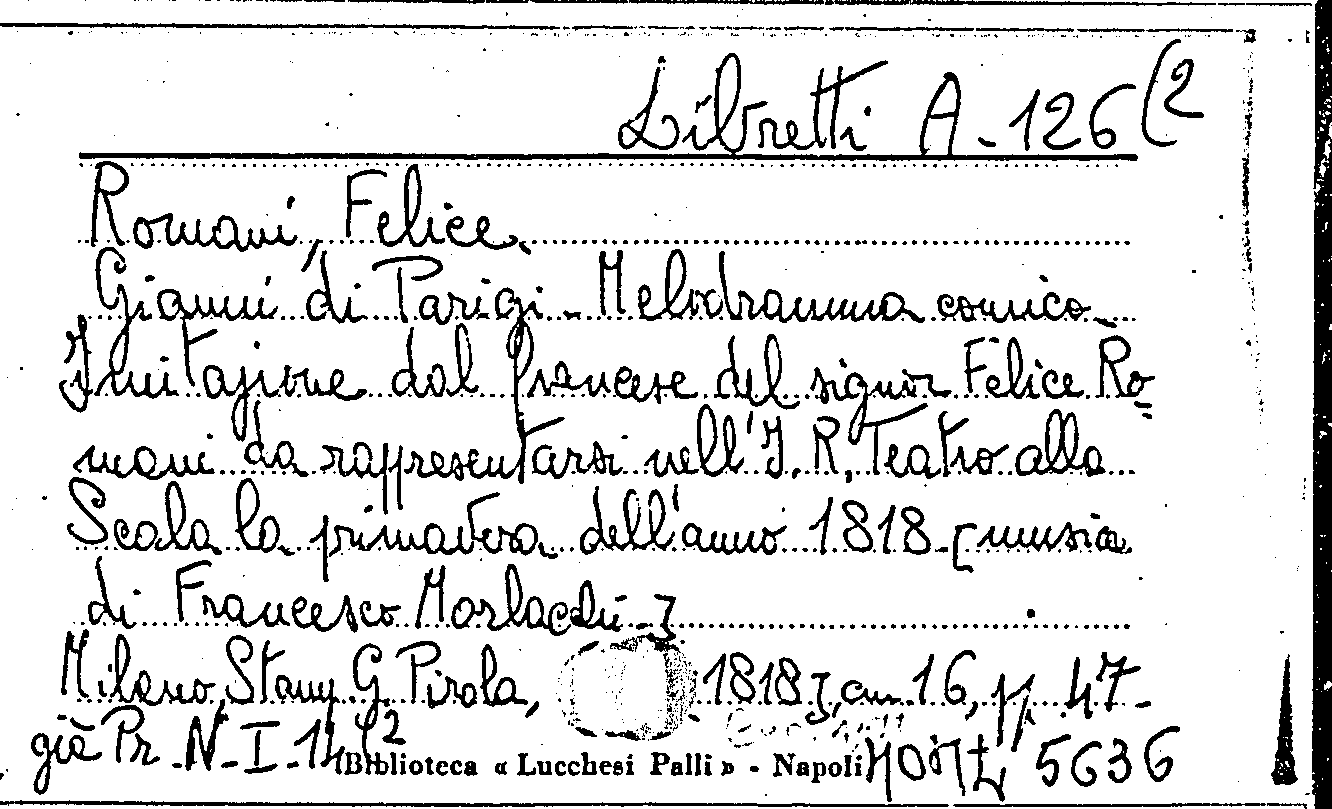 Libretti A-126(2
Romani, Felice.
Gianni di Parigi - Melodramma comico.
Imitazione dal francese del signor Felice Ro=
mani da rappresentarsi nell'I. R. Teatro alla
Scala la primavera dell'anno 1818 - [musica
di Francesco Morlacchi -]
Milano, Stamp. G. Pirola, 1818], cm. 16, pp. 47-
già Pr. N-I-14(2
Biblioteca « Lucchesi Palli » - Napoli 5636